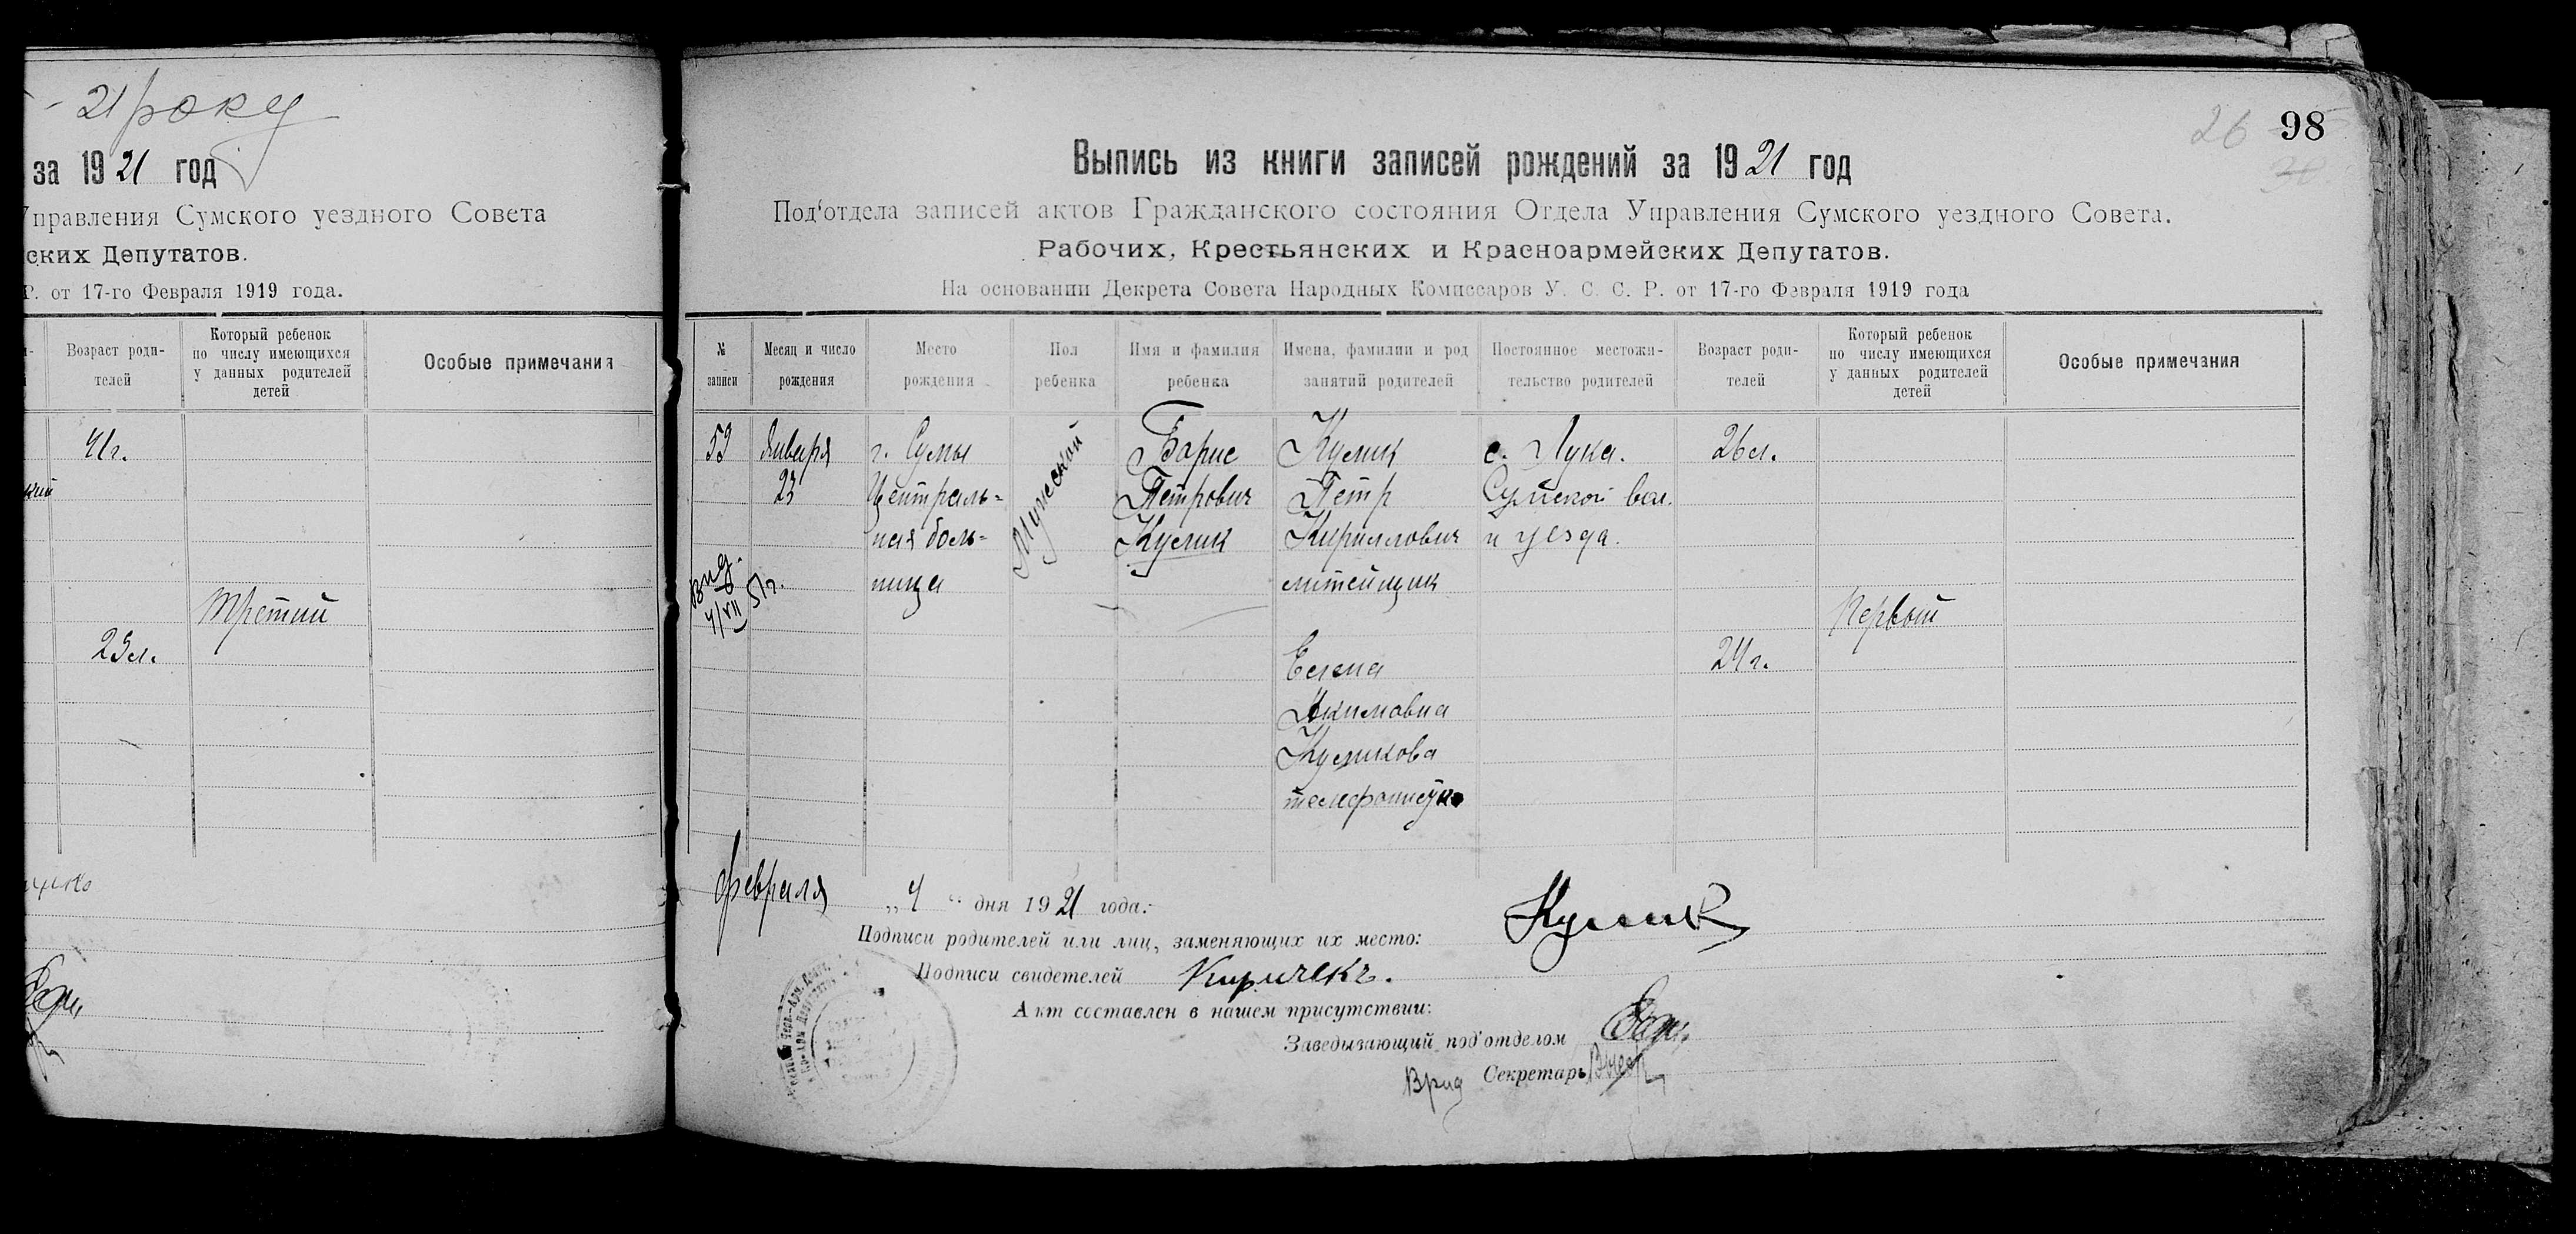 - 21 року
за 1921 год
Управления Сумского уездного Совета
ских Депутатов.
Р. от 17-го Февраля 1919 года.
Возраст роди-
телей
Который ребенок
по числу имеющихся
у данных родителей
детей
Особые примечания
41г.
кий
Третий
23л.
26
98
Выпись из книги записей рождений за 1921 год
Под‘отдела записей актов Гражданского состояния Отдела Управления Сумского уездного Совета.
Рабочих, Крестьянских и Красноармейских Депутатов.
На основании Декрета Совета Народных Комиссаров У. С. С. Р. от 17-го Февраля 1919 года
№
записи
Месяц и число
рождения
Место
рождения
Пол
ребенка
Имя и фамилия
ребенка
Имена, фамилии и род
занятий родителей
Постоянное местожи-
тельство родителей
Возраст роди-
телей
Который ребенок
по числу имеющихся
у данных родителей
детей
Особые примечания
53
Января
23
г. Сумы
Централь-
ная боль-
ница
Мужеской
Борис
Петрович
Кулик
Кулик
Петр
Кириллович
литейщик
Елена
Акимовна
Куликова
телефонистка
с. Лука.
Сумской вол.
и уезда.
26л.
24г.
Первый
вид.
4/VII 51г.
февраля „4“ дня 1921 года.
Подписи родителей или лиц, заменяющих их место: Кулик
Подписи свидетелей Киричекъ.
Акт составлен в нашем присутствии:
Заведывающий под‘отделом
Врид Секретарь